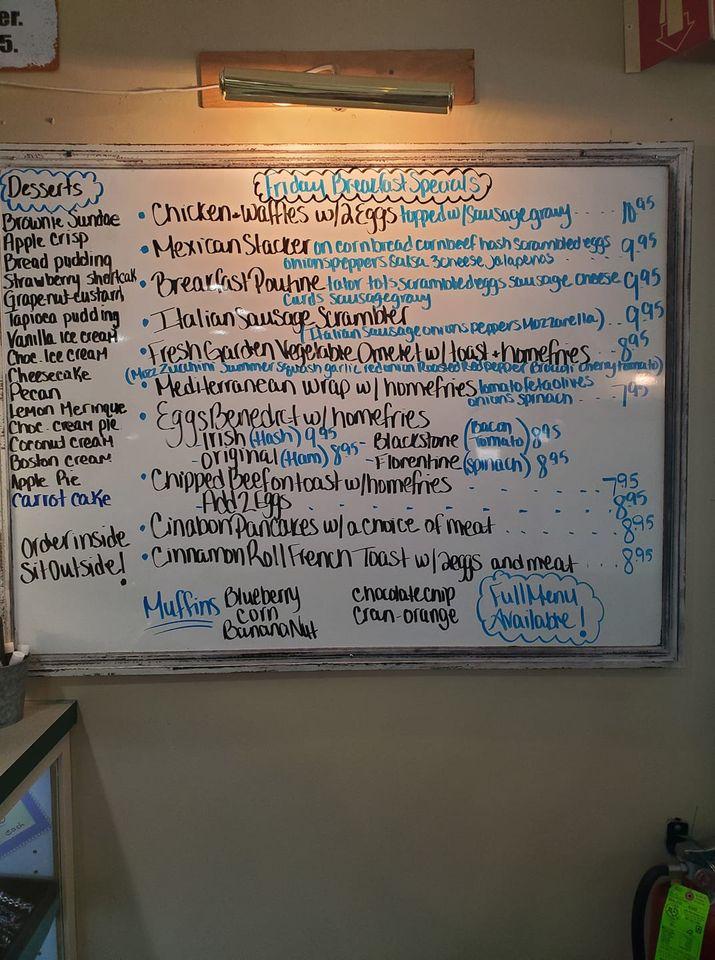 er.
5.
Desserts
Brownie Sundae
Apple crisp
Bread pudding
Strawberry shortcak
Grapenut custard
Tapioca pudding
Vanilla Ice cream
Choc. Ice cream
Cheesecake
Pecan
Lemon Meringue
Choc. cream pie
Coconut cream
Boston cream
Apple Pie
carrot cake
Order inside
Sit Outside!
Friday Breakfast Specials
• Chicken + Waffles w/ 2 Eggs topped w/ Sausage gravy .... 10.95
• Mexican Stacker on cornbread cornbeef hash scrambled eggs 9.95
onions peppers salsa 3 cheese jalapenos
• Breakfast Poutine tator tots scrambled eggs sausage cheese 9.95
curds sausage gravy
• Italian Sausage Scrambler
(Italian Sausage onions peppers Mozzarella) .. 9.95
• Fresh Garden Vegetable Omelet w/ toast + homefries ... 8.95
(Mozz Zucchini Summer Squash garlic red onion Roasted Red pepper Broccoli cherry tomato)
• Mediterranean wrap w/ homefries tomato feta olives
onions spinach - 7.95
• Eggs Benedict w/ homefries
- Irish (Hash) 9.95 - Blackstone (Bacon Tomato) 8.95
- original (Ham) 8.95 - Florentine (Spinach) 8.95
• Chipped Beef on toast w/ homefries 7.95
- Add 2 Eggs 8.95
• Cinabon Pancakes w/ a choice of meat .... 8.95
• Cinnamon Roll French Toast w/ 2 eggs and meat ... 8.95
Muffins Blueberry chocolate chip
corn Cran-orange
Banana Nut
Full Menu
Available!
each